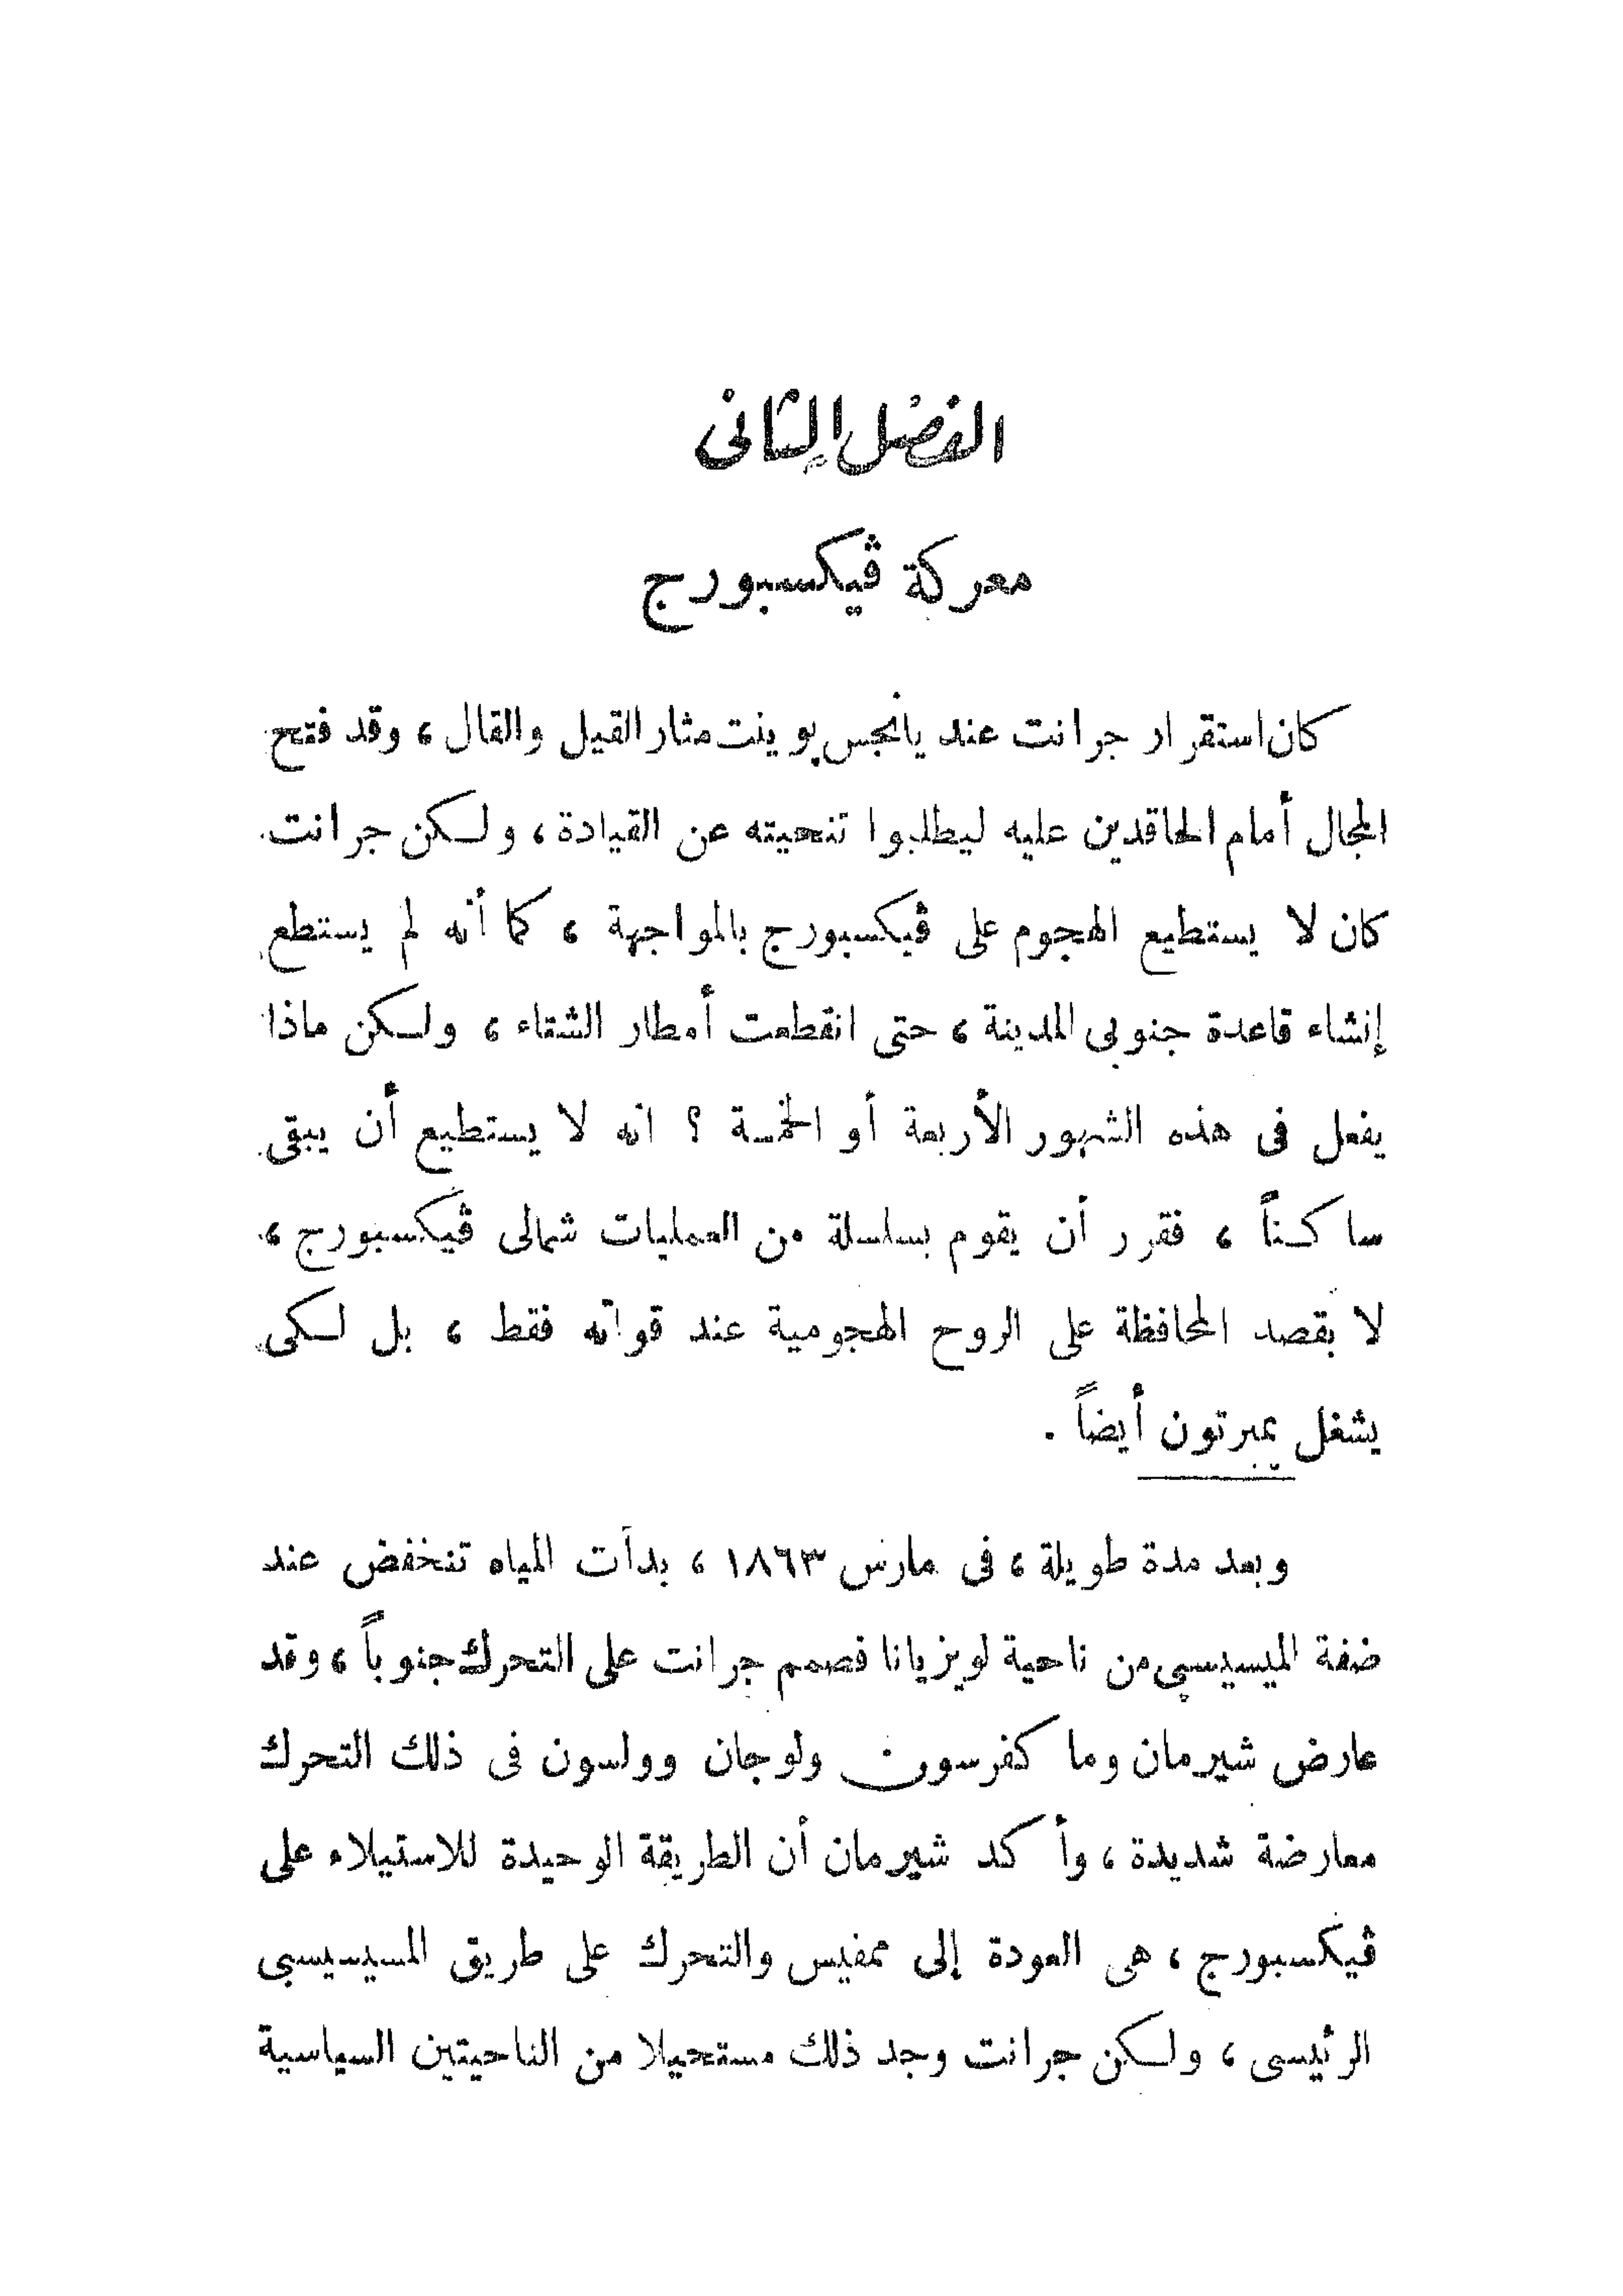 الفصل الثانى
معركة ڤيكسبورج
كان استقرار جرانت عند يانجس بوينت مثار القيل والقال ، وقد فتح
المجال أمام الحاقدين عليه ليطلبوا تنحيته عن القيادة ، ولكن جرانت
كان لا يستطيع الهجوم على ڤيكسبورج بالمواجهة ، كما أنه لم يستطع
إنشاء قاعدة جنوبى المدينة ، حتى انقطعت أمطار الشتاء ، ولكن ماذا
يفعل فى هذه الشهور الأربعة أو الخمسة ؟ انه لا يستطيع أن يبقى
ساكناً ، فقرر أن يقوم بسلسلة من العمليات شمالى ڤيكسبورج ،
لا بقصد المحافظة على الروح الهجومية عند قواته فقط ، بل لكى
يشغل يمبرتون أيضاً .
وبعد مدة طويلة ، فى مارس ١٨٦٣ ، بدأت المياه تنخفض عند
ضفة الميسيسبى من ناحية لويزيانا فصمم جرانت على التحرك جنوباً ، وقد
عارض شيرمان وماكفرسون ولوجان وولسون فى ذلك التحرك
معارضة شديدة ، وأكد شيرمان أن الطريقة الوحيدة للاستيلاء على
ڤيكسبورج ، هى العودة إلى ممفيس والتحرك على طريق المسيسيسبى
الرئيسى ، ولكن جرانت وجد ذلك مستحيلا من الناحيتين السياسية